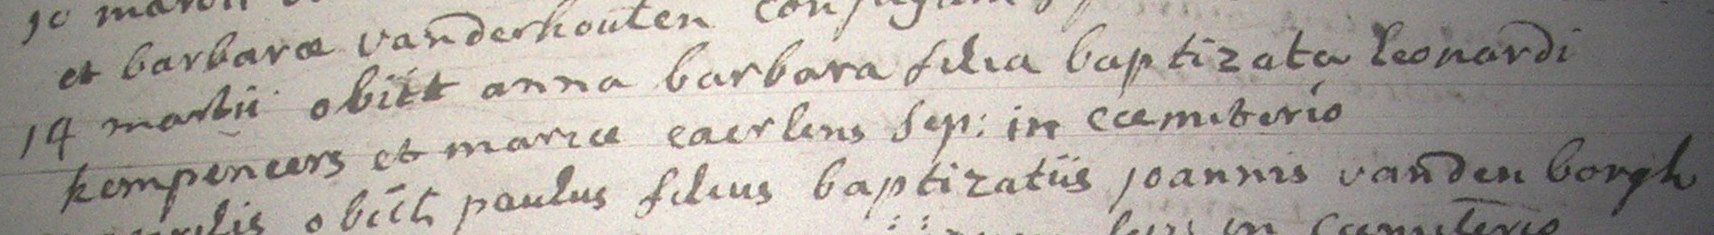 10 martii
et barbaræ vanderhouten conjugum
14 martii obiit anna barbara filia baptizata leonardi
kempeneers et mariæ caerlens sep: in cæmiterio
aprilis obiit paulus filius baptizatus joannis vanden borgh
sep: in cæmiterio